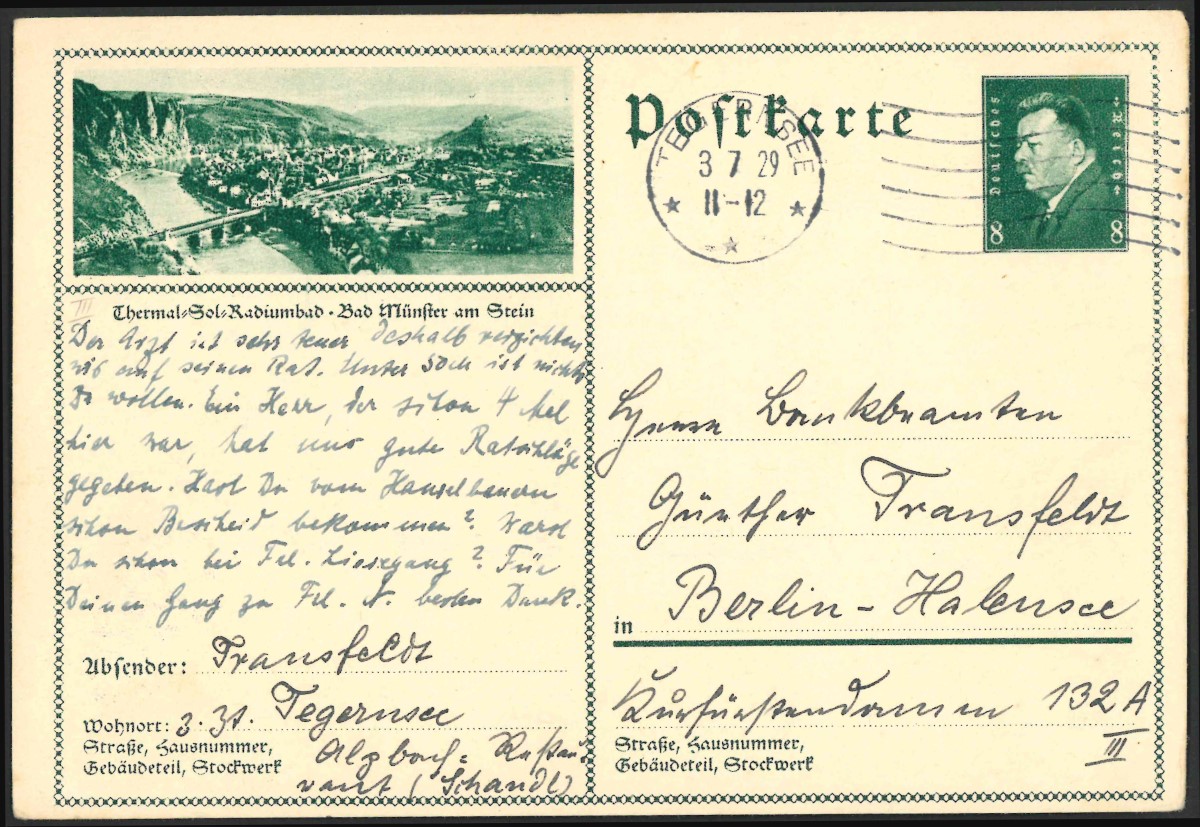 Postkarte
TEGERNSEE
3 7 29
11-12
Deutsches Reich
8 8
Thermal-Sol-Radiumbad · Bad Münster am Stein
III
Der Arzt ist sehr teuer deshalb verzichten
wir auf seinen Rat. Unter 50 M ist nichts
zu wollen. Ein Herr, der schon 4 Mal
hier war, hat uns gute Ratschläge
gegeben. Hast Du vom Hanselbauern
schon Bescheid bekommen? Warst
Du schon bei Frl. Liesegang? Für
Deinen Gang zu Frl. N. besten Dank.
Absender: Transfeldt
Wohnort: z. Zt. Tegernsee
Straße, Hausnummer,
Gebäudeteil, Stockwerk
Alpbach-Restau-
rant (Schandl)
Herrn Bankbeamten
Günther Transfeldt
in Berlin-Halensee
Kurfürstendamm 132 A
III
Straße, Hausnummer,
Gebäudeteil, Stockwerk